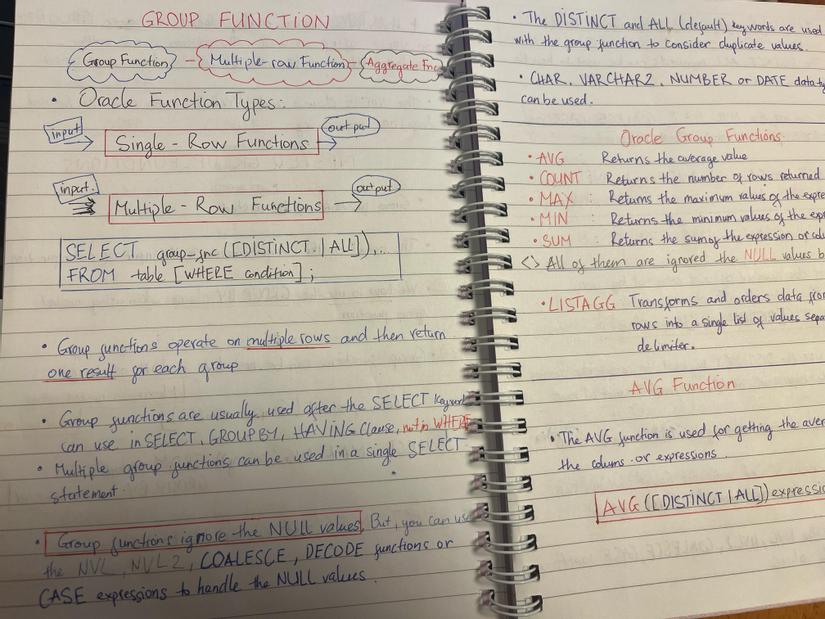 GROUP FUNCTION
Group Function - Multiple-row Function - Aggregate Fnc
• Oracle Function Types:
input
output
Single - Row Functions
input
output
Multiple - Row Functions
SELECT group_fnc ([DISTINCT | ALL]),...
FROM table [WHERE condition];
• Group functions operate on multiple rows and then return
one result for each group
• Group functions are usually used after the SELECT keyword
can use in SELECT, GROUP BY, HAVING Clause, not in WHERE
• Multiple group functions can be used in a single SELECT
statement
• Group functions ignore the NULL values. But, you can use
the NVL, NVL2, COALESCE, DECODE functions or
CASE expressions to handle the NULL values.
• The DISTINCT and ALL (default) keywords are used
with the group function to consider duplicate values.
• CHAR, VARCHAR2, NUMBER or DATE data ty
can be used.
Oracle Group Functions
• AVG Returns the average value
• COUNT : Returns the number of rows returned
• MAX : Returns the maximum values of the expre
• MIN : Returns the minimum values of the exp
• SUM : Returns the sum of the expression or colu
<> All of them are ignored the NULL values b
• LISTAGG Transforms and orders data from
rows into a single list of values sepa
delimiter.
AVG Function
• The AVG function is used for getting the aver
the colums or expressions
AVG ([DISTINCT | ALL]) expressio